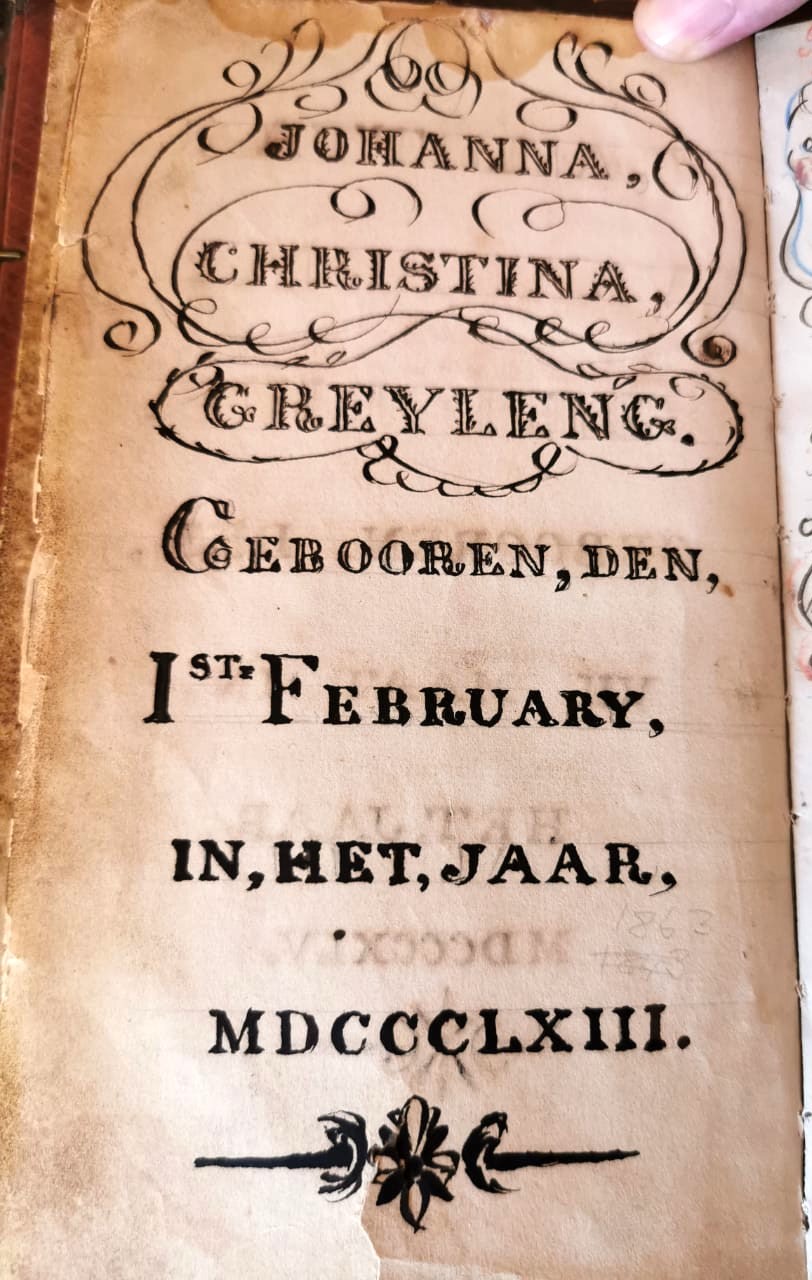 JOHANNA,
CHRISTINA,
GREYLENG.
GEBOOREN, DEN,
1ST. FEBRUARY,
IN, HET, JAAR,
1863
MDCCCLXIII.